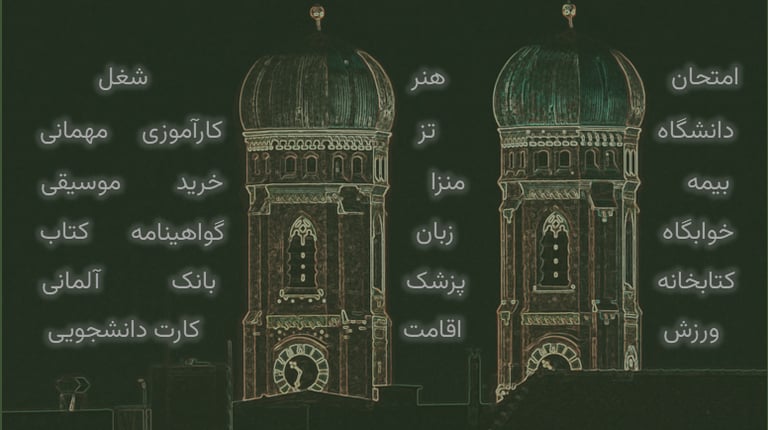 امتحان
دانشگاه
بیمه
خوابگاه
کتابخانه
ورزش
هنر
تز
منزا
زبان
پزشک
اقامت
شغل
کارآموزی مهمانی
خرید موسیقی
گواهینامه کتاب
بانک آلمانی
کارت دانشجویی